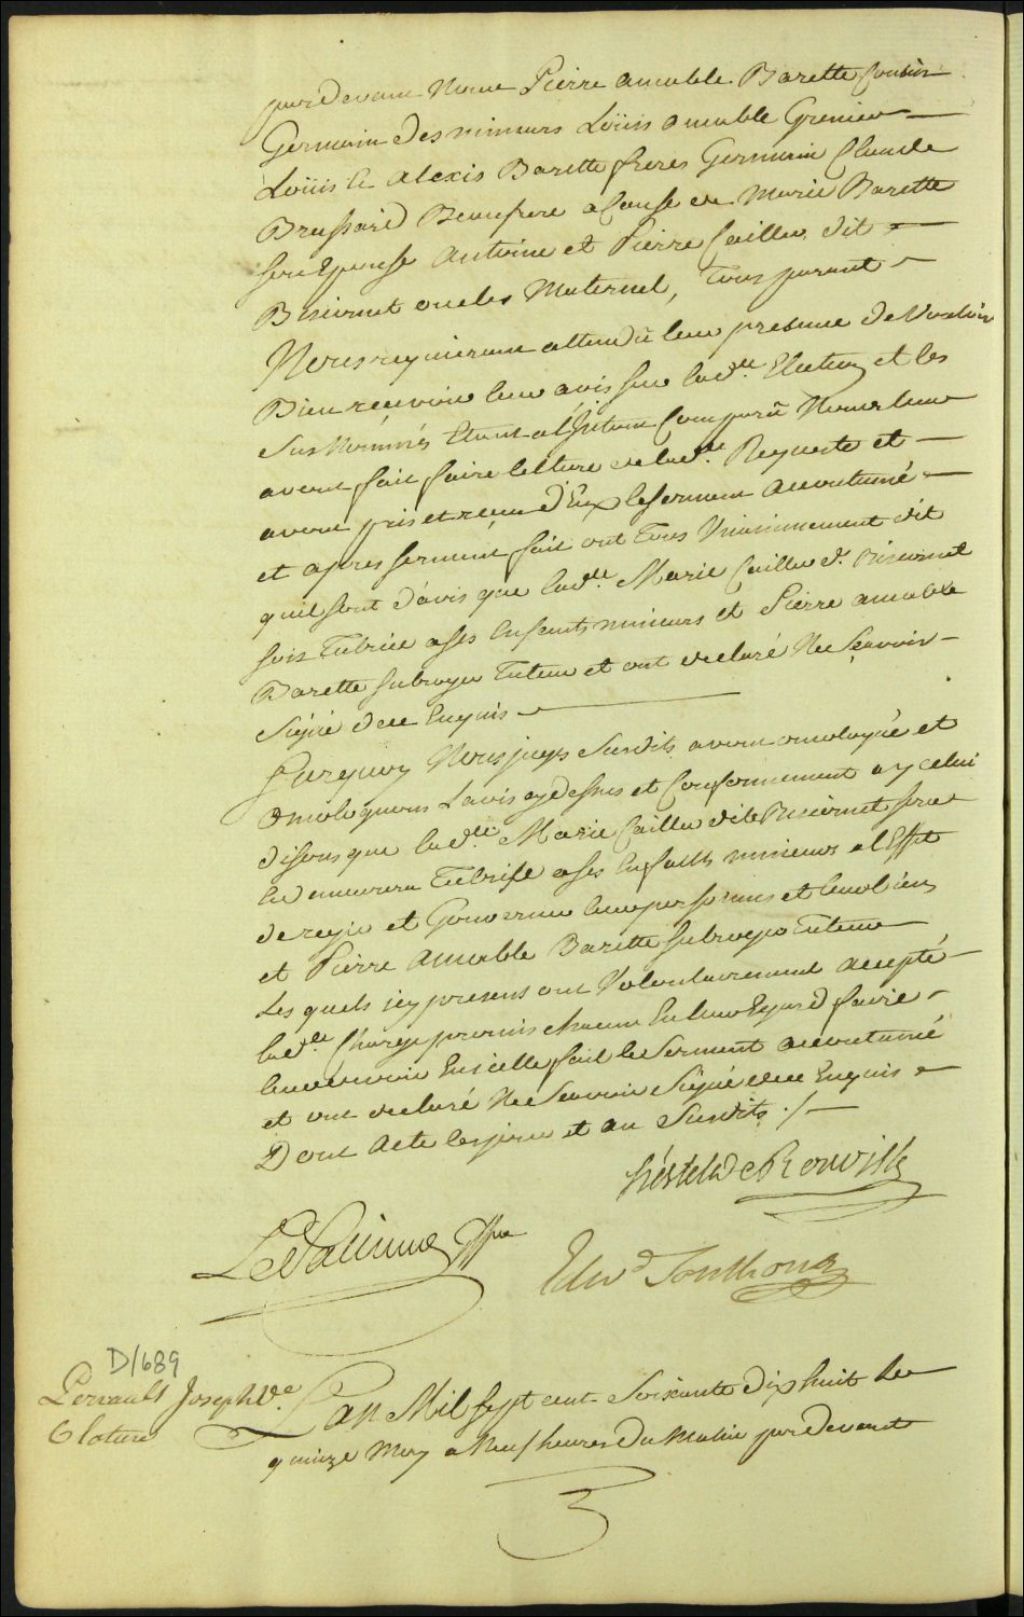 pardevant Nous Pierre amable Barette Cousin
Germain des mineurs Loüis amable Grenier
Loüis & Alexis Barette freres Germain Claude
Brassard Beaufrere a Cause de Marie Barette
son Epouse Antoine et Pierre Cailler dit
Biscornet oncles Maternel, Tous parent
Nous requierant attendû leur presence de Vouloir
Bien recevoir leur avis sur lad.te Election et les
Sus Nommés Etant al'Jnstant Comparû Nous leur
avons fait faire lecture de lad.te Requeste et
avons pris et reçu d'Eux le serment accoutumé
et apres serment fait ont Tous Unanimement dit
quils sont d'avis que lad.te Marie Cailler d.t Biscornet
soit Tutrice a ses Enfants mineurs et Pierre amable
Barette subroger Tuteur et ont declaré Ne Sçavoir
Signé de ce Enquis
Surquoy Nous juges Susdits avons omologué et
omologuons Lavis cy dessus et Conformement a ycelui
disons que lad.te Marie Cailler dite Biscornet sera
& demeurera Tutrice a ses Enfants mineurs al'Effet
de regir et Gouverner leur personnes et leur biens
et Pierre Amable Barette subroger Tuteur
Les quels icy presens ont Volontairement accepté
lad.te Charge promis chacun En leur Egard faire
leur devoir En icelle fait le Serment accoutumé
et ont declaré Ne Scavoir Signé de ce Enquis
Dont Acte les jour et an Susdits ./.
hertel De Rouville
LePallieur Gffier
Edw.d Southouse
D/689
Perrault Joseph V.e
Cloture
L'an Mil sept cent Soixante dix huit le
quinze May a Neuf heures Du Matin par devant